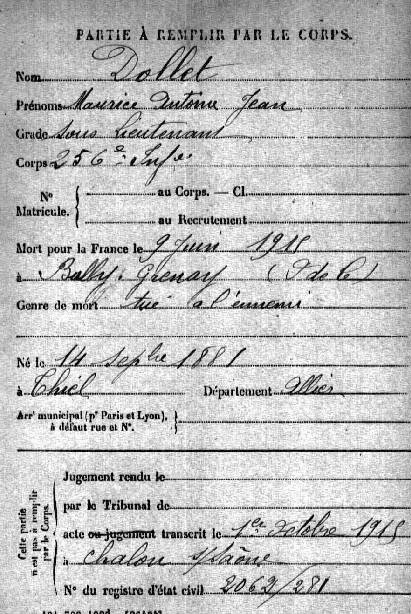 PARTIE À REMPLIR PAR LE CORPS.
Nom Dollet
Prénoms Maurice Antoine Jean
Grade sous Lieutenant
Corps 256e Infie
No Matricule. { au Corps. — Cl.
au Recrutement
Mort pour la France le 9 Juin 1915
à Bully-Grenay (P de C)
Genre de mort tué à l'ennemi
Né le 14 Sepbre 1881
à Thiel Département Allier
Arrt municipal (pr Paris et Lyon), à défaut rue et No. }
Cette partie n'est pas à remplir par le Corps.
Jugement rendu le
par le Tribunal de
acte ou jugement transcrit le 1er octobre 1915
à Chalon s/Saône
No du registre d'état civil 2062/281